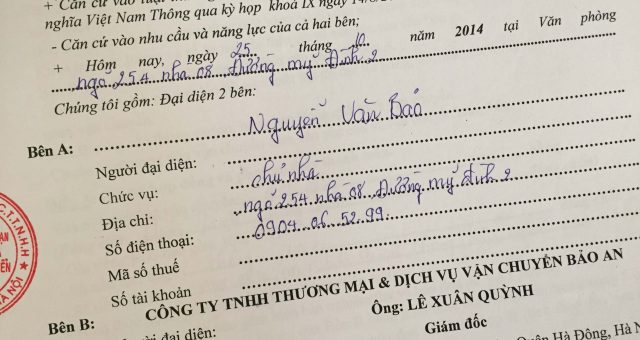 + Căn cứ vào luật
nghĩa Việt Nam Thông qua kỳ họp khoá IX ngày 14/
- Căn cứ vào nhu cầu và năng lực của cả hai bên;
+ Hôm nay, ngày 25 tháng 10 năm 2014 tại Văn phòng
ngõ 254 nhà 08 Đường mỹ Đình 2
Chúng tôi gồm: Đại diện 2 bên:
Bên A: Nguyễn Văn Bảo
Người đại diện:
Chức vụ: chủ nhà
Địa chỉ: ngõ 254 nhà 08 Đường mỹ đình 2
Số điện thoại: 0904 06 52 99
Mã số thuế
Số tài khoản
Bên B: CÔNG TY TNHH THƯƠNG MẠI & DỊCH VỤ VẬN CHUYỂN BẢO AN
Người đại diện: Ông: LÊ XUÂN QUỲNH
Giám đốc
Quận Hà Đông, Hà N
C.T.T.N.H.H
HÀ NỘI